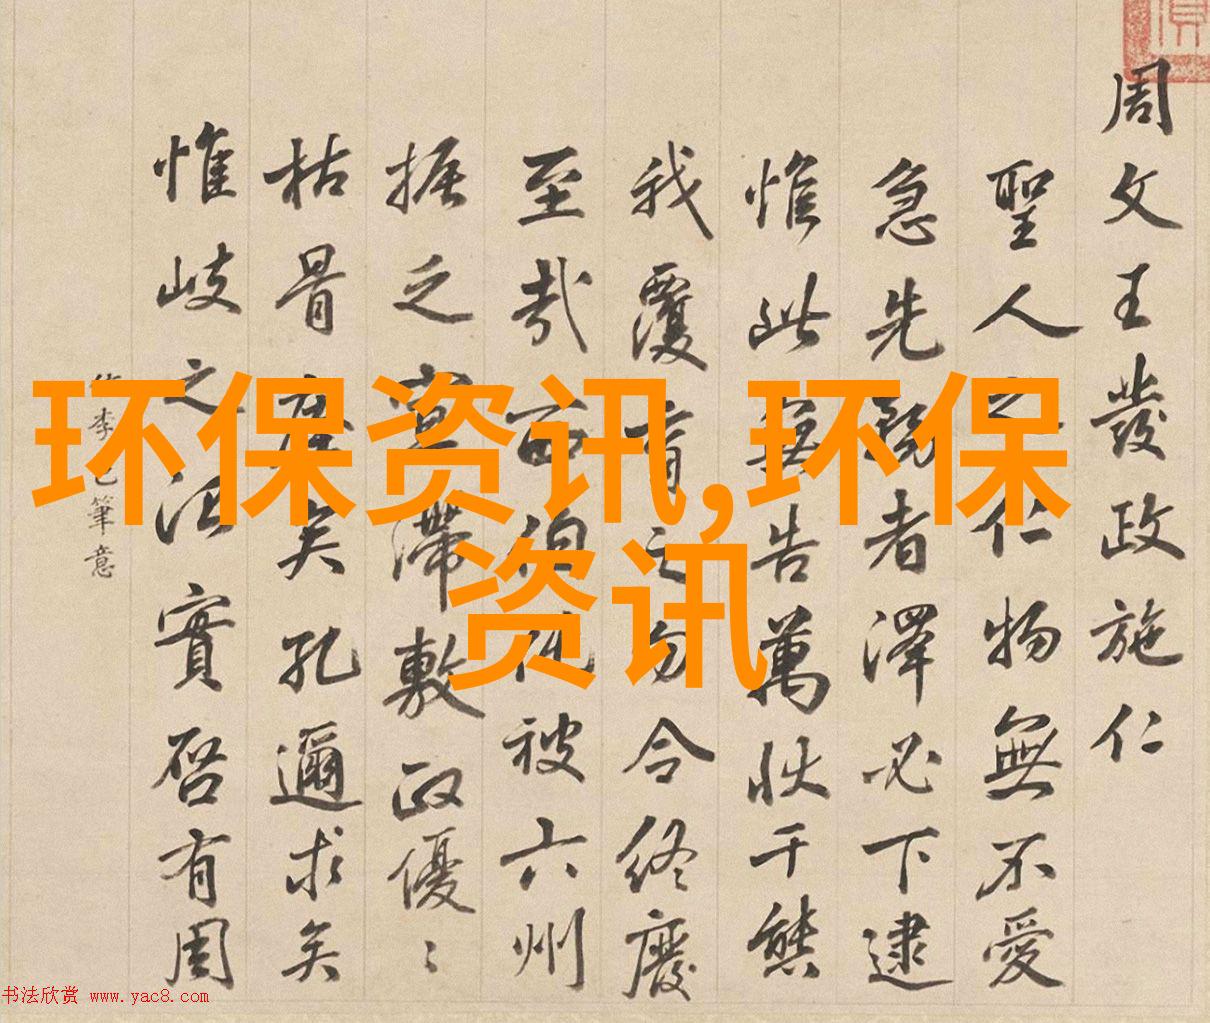 周文王發政施仁
聖人之仁仁物無不愛
急先務者澤必下逮
惟此無告萬狀千態
我覆育之勿令終廢
至哉西伯化被六州
振之窒滯敷政優〻
枯骨 矣孔邇求矣
惟岐之治實啓有周
李 筆意
环保资讯,环保
资讯
书法欣赏 www.yac8.com